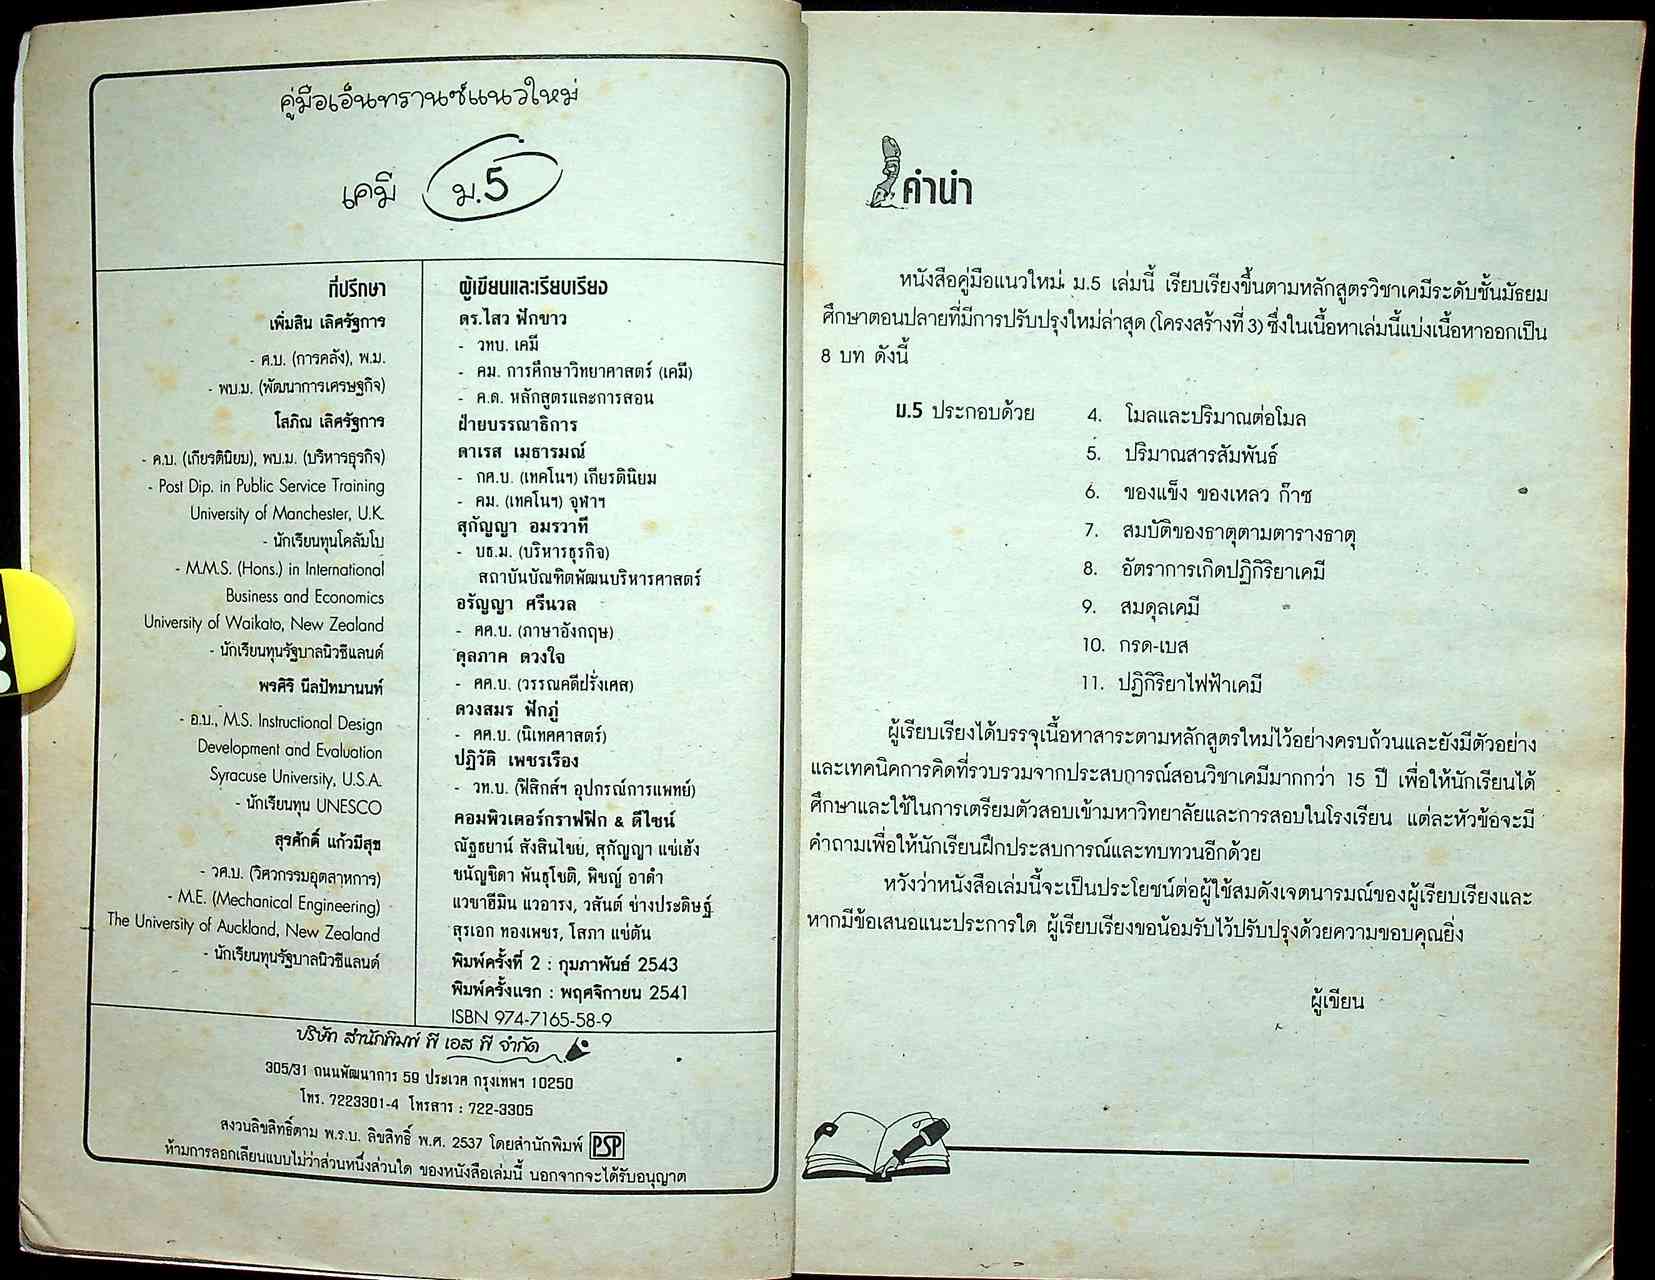 คู่มือเอ็นทรานซ์แนวใหม่
เคมี ม.5
ที่ปรึกษา
เพิ่มสิน เลิศรัฐการ
- ศ.บ. (การคลัง), พ.ม.
- พบ.ม. (พัฒนาการเศรษฐกิจ)
โสภิณ เลิศรัฐการ
- ค.บ. (เกียรตินิยม), พบ.ม. (บริหารธุรกิจ)
- Post Dip. in Public Service Training
University of Manchester, U.K.
- นักเรียนทุนโคลัมโบ
- M.M.S. (Hons.) in International
Business and Economics
University of Waikato, New Zealand
- นักเรียนทุนรัฐบาลนิวซีแลนด์
พรศิริ นีลปัทมานนท์
- อ.บ., M.S. Instructional Design
Development and Evaluation
Syracuse University, U.S.A.
- นักเรียนทุน UNESCO
สุรศักดิ์ แก้วมีสุข
- วศ.บ. (วิศวกรรมอุตสาหการ)
- M.E. (Mechanical Engineering)
The University of Auckland, New Zealand
- นักเรียนทุนรัฐบาลนิวซีแลนด์
ผู้เขียนและเรียบเรียง
ดร.ไสว ฟักขาว
- วทบ. เคมี
- คม. การศึกษาวิทยาศาสตร์ (เคมี)
- ค.ด. หลักสูตรและการสอน
ฝ่ายบรรณาธิการ
ดาเรส เมธารมณ์
- กศ.บ. (เทคโนฯ) เกียรตินิยม
- คม. (เทคโนฯ) จุฬาฯ
สุกัญญา อมรวาที
- บธ.ม. (บริหารธุรกิจ)
สถาบันบัณฑิตพัฒนบริหารศาสตร์
อรัญญา ศรีนวล
- ศศ.บ. (ภาษาอังกฤษ)
ดุลภาค ดวงใจ
- ศศ.บ. (วรรณคดีฝรั่งเศส)
ดวงสมร ฟักภู่
- ศศ.บ (นิเทศศาสตร์)
ปฏิวัติ เพชรเรือง
- วท.บ. (ฟิสิกส์ฯ อุปกรณ์การแพทย์)
คอมพิวเตอร์กราฟฟิก & ดีไซน์
ณัฐธยาน์ สังสินไชย, สุกัญญา แซ่เฮ้ง
ขนัญชิดา พันธุโชติ, พิชญ์ อาดำ
แวซาฮีมิน แวอารง, วสันต์ ช่างประดิษฐ์
สุรเอก ทองเพชร, โสภา แซ่ตัน
พิมพ์ครั้งที่ 2 : กุมภาพันธ์ 2543
พิมพ์ครั้งแรก : พฤศจิกายน 2541
ISBN 974-7165-58-9
บริษัท สำนักพิมพ์ พี เอส พี จำกัด
305/31 ถนนพัฒนาการ 59 ประเวศ กรุงเทพฯ 10250
โทร. 7223301-4 โทรสาร : 722-3305
สงวนลิขสิทธิ์ตาม พ.ร.บ. ลิขสิทธิ์ พ.ศ. 2537 โดยสำนักพิมพ์ PSP
ห้ามการลอกเลียนแบบไม่ว่าส่วนหนึ่งส่วนใด ของหนังสือเล่มนี้ นอกจากจะได้รับอนุญาต
คำนำ
หนังสือคู่มือแนวใหม่ ม.5 เล่มนี้ เรียบเรียงขึ้นตามหลักสูตรวิชาเคมีระดับชั้นมัธยม
ศึกษาตอนปลายที่มีการปรับปรุงใหม่ล่าสุด (โครงสร้างที่ 3) ซึ่งในเนื้อหาเล่มนี้แบ่งเนื้อหาออกเป็น
8 บท ดังนี้
ม.5 ประกอบด้วย 4. โมลและปริมาณต่อโมล
5. ปริมาณสารสัมพันธ์
6. ของแข็ง ของเหลว ก๊าซ
7. สมบัติของธาตุตามตารางธาตุ
8. อัตราการเกิดปฏิกิริยาเคมี
9. สมดุลเคมี
10. กรด-เบส
11. ปฏิกิริยาไฟฟ้าเคมี
ผู้เรียบเรียงได้บรรจุเนื้อหาสาระตามหลักสูตรใหม่ไว้อย่างครบถ้วนและยังมีตัวอย่าง
และเทคนิคการคิดที่รวบรวมจากประสบการณ์สอนวิชาเคมีมากกว่า 15 ปี เพื่อให้นักเรียนได้
ศึกษาและใช้ในการเตรียมตัวสอบเข้ามหาวิทยาลัยและการสอบในโรงเรียน แต่ละหัวข้อจะมี
คำถามเพื่อให้นักเรียนฝึกประสบการณ์และทบทวนอีกด้วย
หวังว่าหนังสือเล่มนี้จะเป็นประโยชน์ต่อผู้ใช้สมดังเจตนารมณ์ของผู้เรียบเรียงและ
หากมีข้อเสนอแนะประการใด ผู้เรียบเรียงขอน้อมรับไว้ปรับปรุงด้วยความขอบคุณยิ่ง
ผู้เขียน